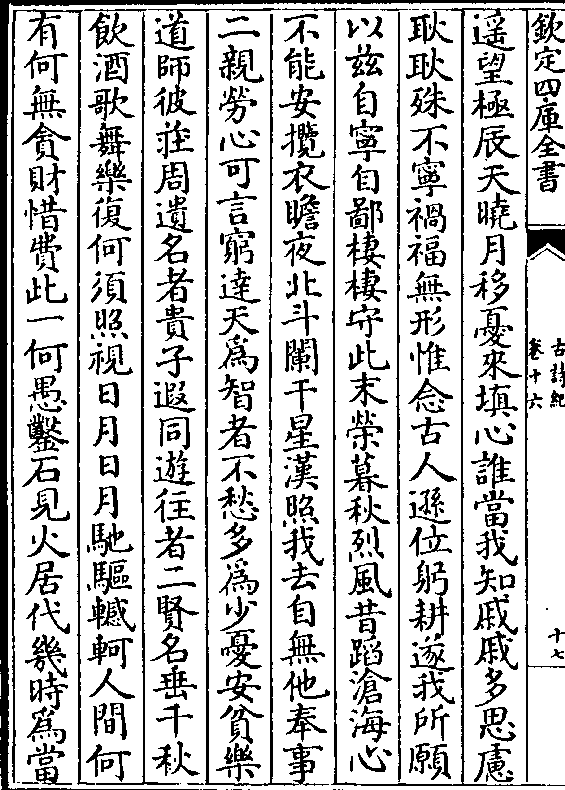 欽定四庫全書
古詩紀
卷十六
十七
遥望極辰天曉月移憂來填心誰當我知戚戚多思慮
耿耿殊不寧禍福無形惟念古人遜位躬耕遂我所願
以兹自寧自鄙棲棲守此末榮暮秋烈風昔蹈滄海心
不能安攬衣瞻夜北斗闌干星漢照我去自無他奉事
二親勞心可言窮達天為智者不愁多為少憂安貧樂
道師彼莊周遺名者貴子遐同遊往者二賢名垂千秋
飲酒歌舞樂復何須照視日月日月馳驅轗軻人間何
有何無貪財惜費此一何愚鑿石見火居代幾時為當